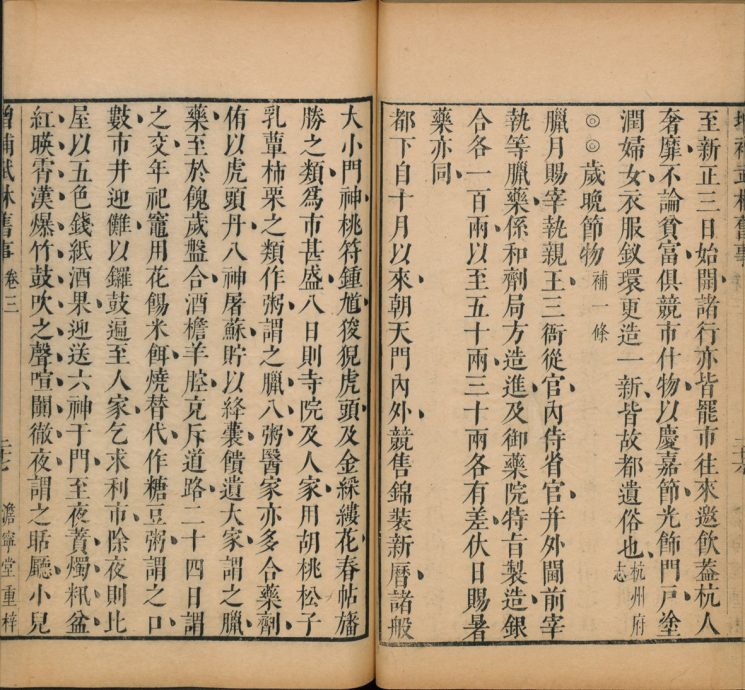 至新正三日始開諸行亦皆罷市往來邀飲蓋杭人
奢靡不論貧富俱競市什物以慶嘉節光飾門戶塗
潤婦女衣服釵環更造一新皆故都遺俗也杭州府志
◎◎歲晚節物補一條
臘月賜宰執親王三衙從官內侍省官幷外閫前宰
執等臘藥係和劑局方造進及御藥院特旨製造銀
合各一百兩以至五十兩三十兩各有差伏日賜暑
藥亦同
都下自十月以來朝天門內外競售錦裝新曆諸般
大小門神桃符鍾馗狻猊虎頭及金綵縷花春帖旛
勝之類爲市甚盛八日則寺院及人家用胡桃松子
乳蕈柿栗之類作粥謂之臘八粥醫家亦多合藥劑
侑以虎頭丹八神屠蘇貯以絳囊饋遺大家謂之臘
藥至於餽歲盤合酒檐羊腔充斥道路二十四日謂
之交年祀竈用花餳米餌燒替代作糖豆粥謂之口
數市井迎儺以鑼鼓遍至人家乞求利市除夜則比
屋以五色錢紙酒果迎送六神于門至夜蕡燭籸盆
紅暎霄漢爆竹鼓吹之聲喧闐徹夜謂之聒廳小兒
增補武林舊事 卷三
澹寧堂重梓